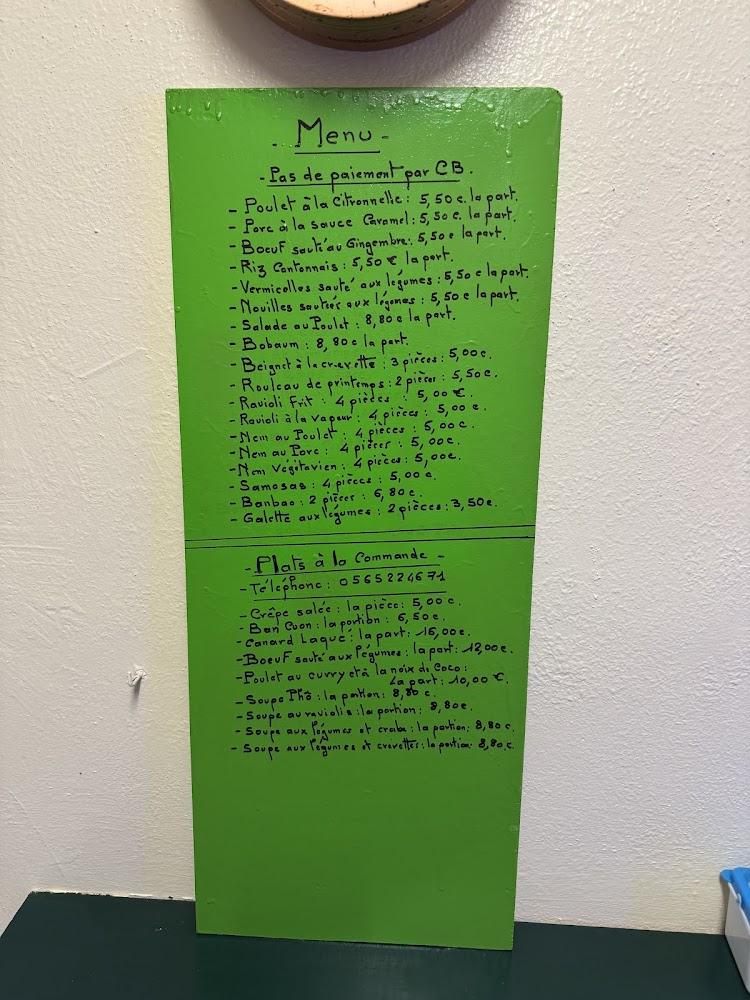 - Menu -
- Pas de paiement par CB.
- Poulet à la Citronnelle : 5,50 €. la part.
- Porc à la sauce Caramel : 5,50 €. la part.
- Boeuf sauté au Gingembre : 5,50 € la part.
- Riz Cantonnais : 5,50 € la part.
- Vermicelles sauté aux légumes : 5,50 € la part.
- Nouilles sautées aux légumes : 5,50 € la part.
- Salade au Poulet : 8,80 € la part.
- Bobaum : 8,80 € la part.
- Beignet à la crevette : 3 pièces : 5,00 €.
- Rouleau de printemps : 2 pièces : 5,50 €.
- Ravioli Frit : 4 pièces : 5,00 €.
- Ravioli à la vapeur : 4 pièces : 5,00 €.
- Nem au Poulet : 4 pièces : 5,00 €.
- Nem au Porc : 4 pièces : 5,00 €.
- Nem Végétarien : 4 pièces : 5,00 €.
- Samosas : 4 pièces : 5,00 €.
- Banbao : 2 pièces : 6,80 €.
- Galette aux légumes : 2 pièces : 3,50 €.
- Plats à la Commande -
- Téléphone : 0565224671
- Crêpe salée : la pièce : 5,00 €.
- Ban Cuon : la portion : 6,50 €.
- Canard Laqué : la part : 16,00 €.
- Boeuf sauté aux légumes : la part : 12,00 €.
- Poulet au curry et à la noix de Coco :
La part : 10,00 €.
- Soupe Phô : la portion : 8,80 €.
- Soupe au raviolis : la portion : 8,80 €.
- Soupe aux légumes et crabe : la portion : 8,80 €.
- Soupe aux légumes et crevettes : la portion : 8,80 €.